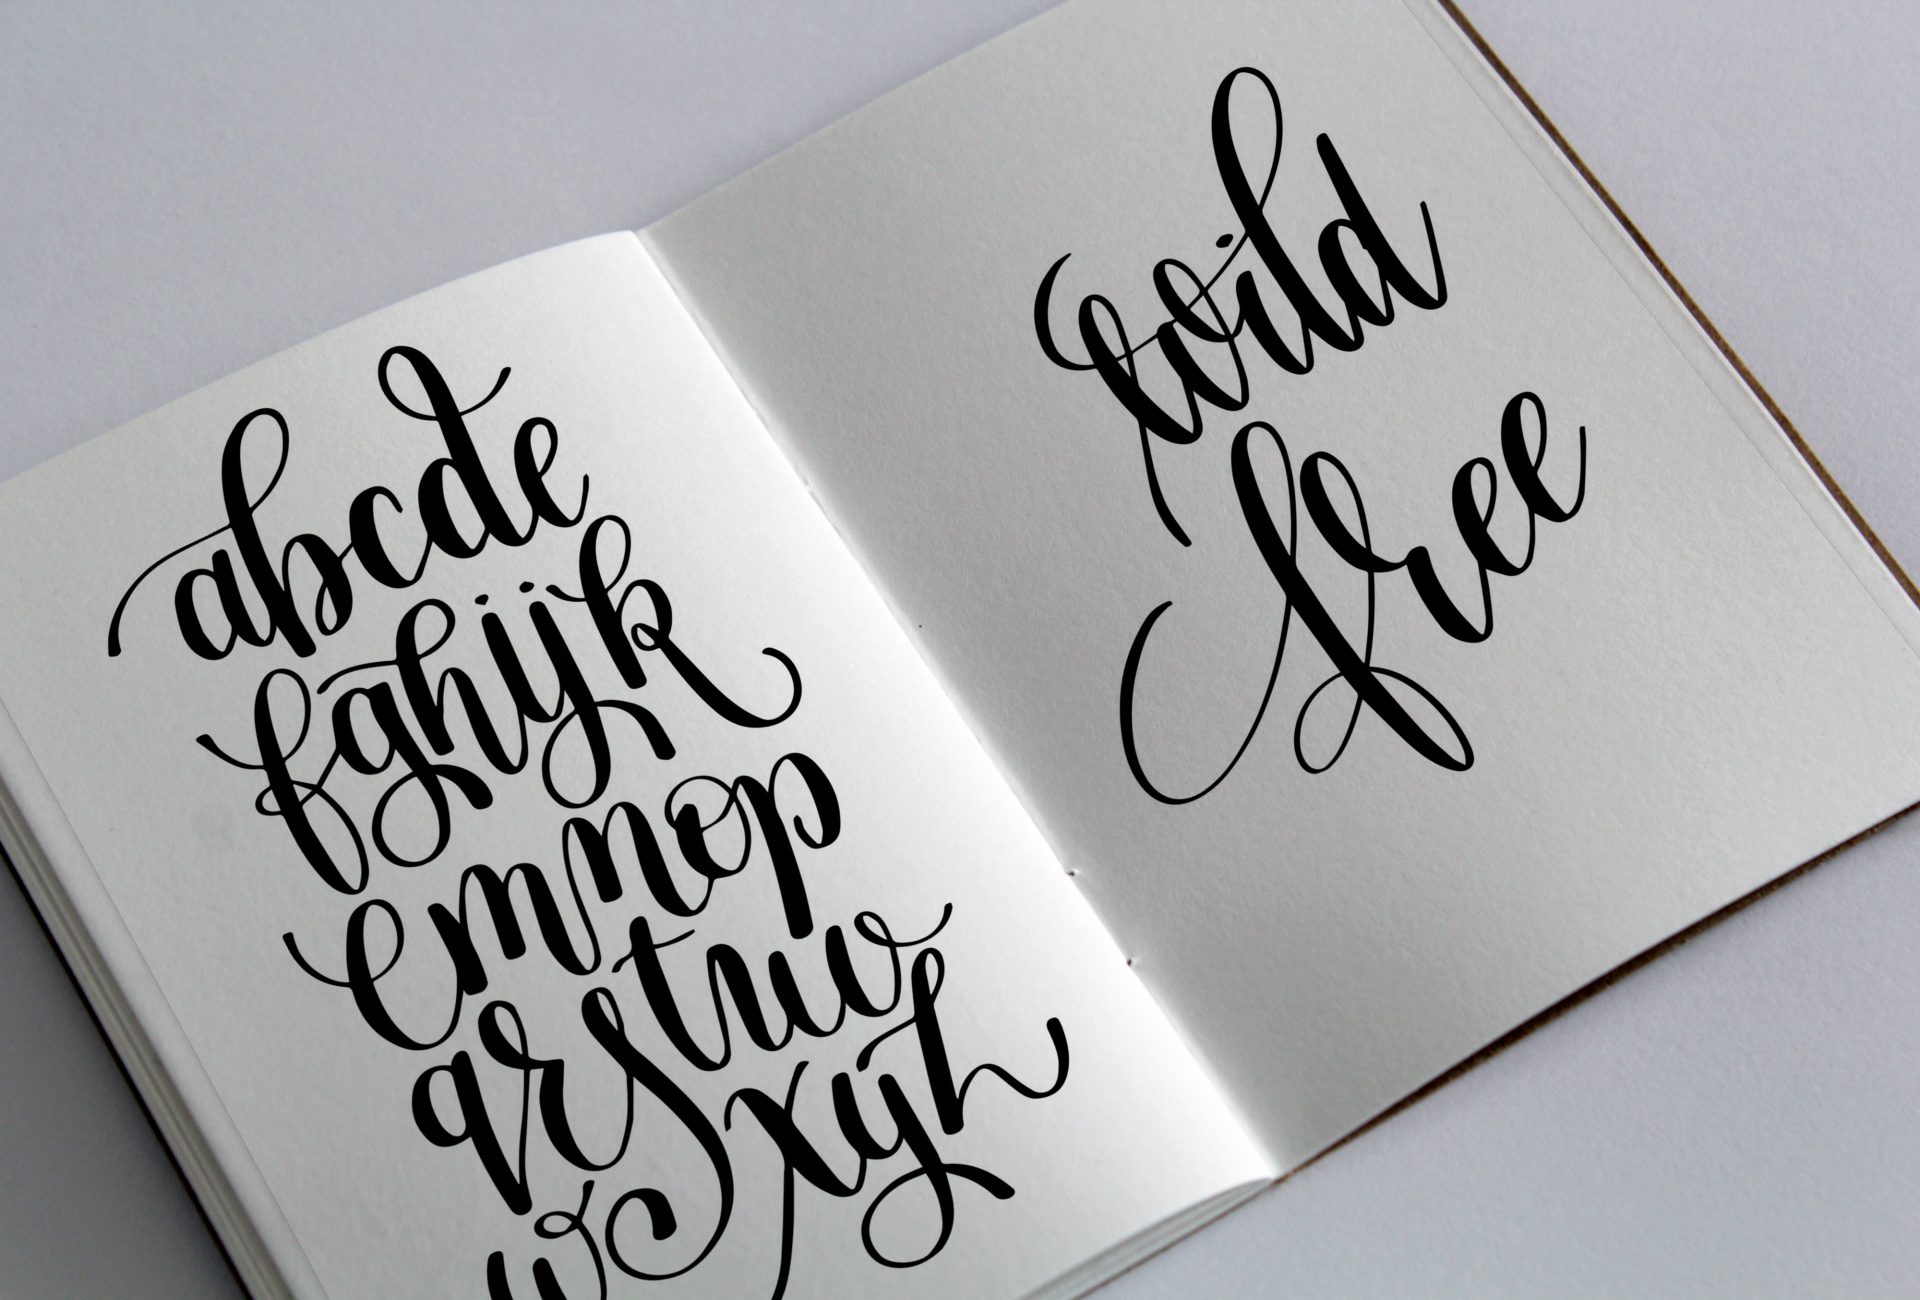 abcde
fghijk
lmnop
qrstuv
wxyz
wild
free